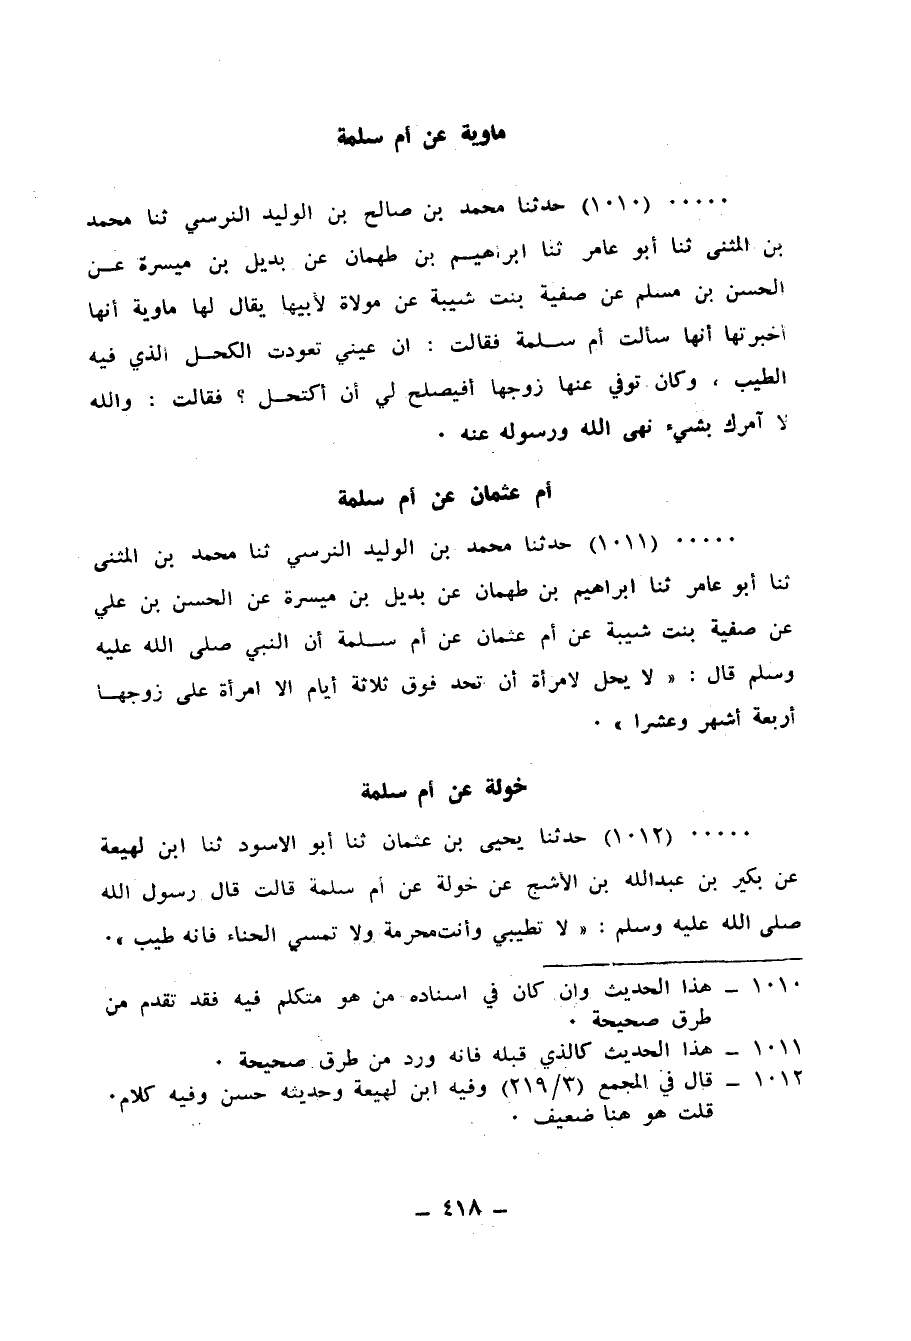 ماوية عن أم سلمة
٠٠٠٠٠ (١٠١٠) حدثنا محمد بن صالح بن الوليد النرسي ثنا محمد
بن المثنى ثنا أبو عامر ثنا ابراهيم بن طهمان عن بديل بن ميسرة عن
الحسن بن مسلم عن صفية بنت شيبة عن مولاة لأبيها يقال لها ماوية أنها
أخبرتها أنها سألت أم سلمة فقالت : ان عيني تعودت الكحل الذي فيه
الطيب ، وكان توفي عنها زوجها أفيصلح لي أن أكتحل ؟ فقالت : والله
لا آمرك بشيء نهى الله ورسوله عنه ٠
أم عثمان عن أم سلمة
٠٠٠٠٠ (١٠١١) حدثنا محمد بن الوليد النرسي ثنا محمد بن المثنى
ثنا أبو عامر ثنا ابراهيم بن طهمان عن بديل بن ميسرة عن الحسن بن علي
عن صفية بنت شيبة عن أم عثمان عن أم سلمة أن النبي صلى الله عليه
وسلم قال : « لا يحل لامرأة أن تحد فوق ثلاثة أيام الا امرأة على زوجها
أربعة أشهر وعشرا » ٠
خولة عن أم سلمة
٠٠٠٠٠ (١٠١٢) حدثنا يحيى بن عثمان ثنا أبو الاسود ثنا ابن لهيعة
عن بكير بن عبدالله بن الأشج عن خولة عن أم سلمة قالت قال رسول الله
صلى الله عليه وسلم : « لا تطيبي وأنت محرمة ولا تمسي الحناء فانه طيب »٠
١٠١٠ ـ هذا الحديث وان كان في اسناده من هو متكلم فيه فقد تقدم من
طرق صحيحة ٠
١٠١١ ـ هذا الحديث كالذي قبله فانه ورد من طرق صحيحة ٠
١٠١٢ ـ قال في المجمع (٢١٩/٣) وفيه ابن لهيعة وحديثه حسن وفيه كلام٠
قلت هو هنا ضعيف ٠
ـ ٤١٨ ـ